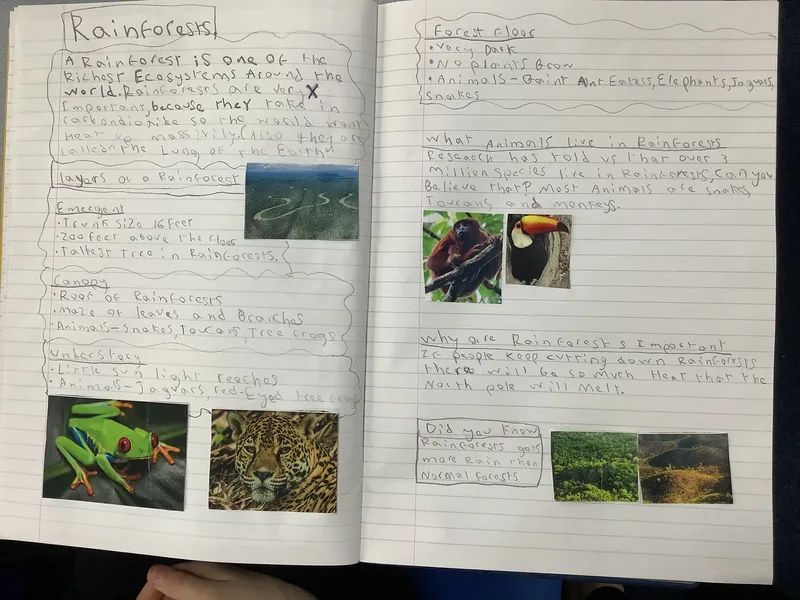 Rainforests,
A Rainforest is one of the
Richest Ecosystems Around the
world. Rainforests are very
Important, because they take in
carbondioxide so the world wont
Heat up massivily, Also they are
called "the Lung of the Earth"
Layers of a Rainforest
Emergent
• Trunk Size 16 feet
• 200 feet above the floor
• Tallest Tree in Rainforests.
Canopy
• Roof of Rainforests
• maze of leaves and Branches
• Animals - Snakes, Toucans, Tree frogs
Understory
• Little sun light reaches
• Animals - Jaguars, red-Eyed tree frogs
Forest floor
• Very Dark
• No plants Grow
• Animals - Gaint Ant Eaters, Elephants, Jaguars,
Snakes
What Animals live in Rainforests
Research has told us that over 3
million Species live in Rainforests, Can you
Believe that? Most Animals are snakes,
Toucans and monkeys.
Why are Rainforest s Important
If people keep cutting down Rainforests
there will be so much Heat that the
North pole will Melt.
Did you know
Rainforests gets
more Rain than
Normal forests